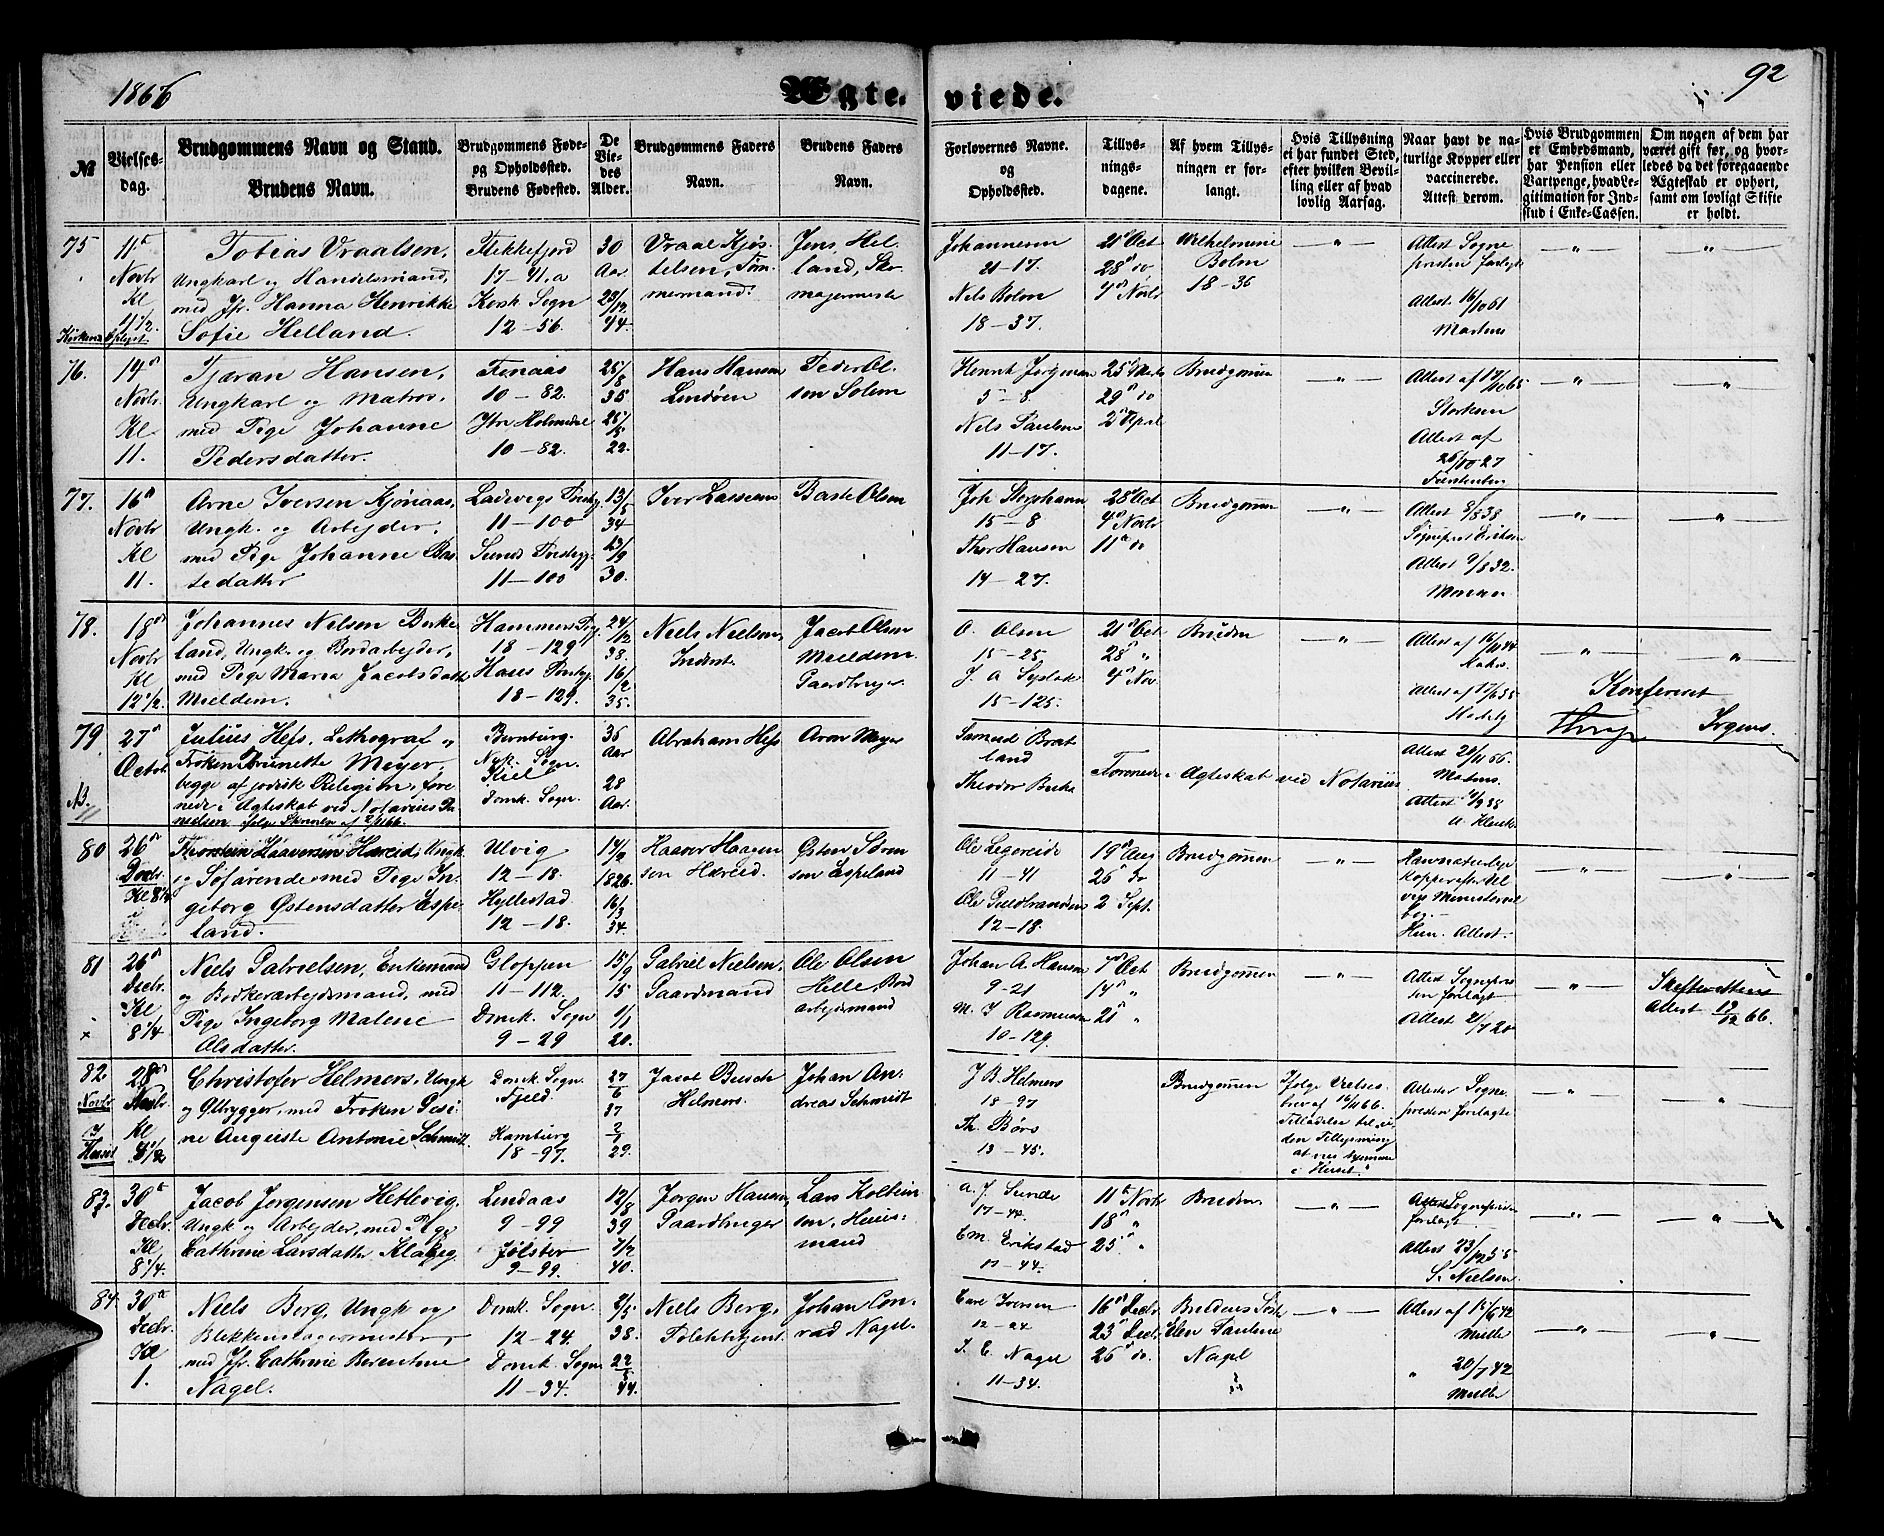 1866
Ægte-viede.
92
No
Vielses-dag.
Brudgommens Navn og Stand.
Brudens Navn.
Brudgommens Føde-
og Opholdssted.
Brudens Fødested.
De
Vie-
des
Alder.
Brudgommens Faders
Navn.
Brudens Faders
Navn.
Forlovernes Navne.
og
Opholdssted.
Tillys-
nings-
dagene.
Af hvem Tillys-
ningen er for-
langt.
Hvis Tillysning
ei har fundet Sted,
efter hvilken Bevil-
ling eller af hvad
lovlig Aarsag.
Naar havt de na-
turlige Kopper eller
vaccinerede.
Attest derom.
Hvis Brudgommen
er Embedsmand,
har Pension eller
Vartpenge, hvad Le-
gitimation for Ind-
skud i Enke-Cassen.
Om nogen af dem har
været gift før, og hvor-
ledes da det foregaaende
Ægteskab er ophørt,
samt om lovligt Skifte
er holdt.
75
11te
Novbr
Kl
11 1/2.
Tobias Vraalsen,
Ungkarl og Handelsmand,
med Jfr. Hanna Henrikke
Sofie Helland.
Flekkefjord
17-41,a
Korsk. Sogn
12-56.
30
Aar
23/12
44.
Vraal Kjøs-
telsen, Tøm-
mermand.
Jens Hel-
land, Sko-
magermester
21-17.
Nels Bolen
18-37.
21 Oct
28 do
4 Novbr
Wilhelmine
Bolen
18-36
Attest Sogne
presten forlagt
Attest 16/10 61
Martens
76.
14de
Novbr.
Kl
11.
Tjæran Hansen,
Ungkarl og Matros,
med Pige Johanne
Pedersdatter.
10-82.
Ytre Holmedal
10-82.
25/8
35
22.
Hans Hansen
Lindøen
Peder Ol-
sen Solem
Henrik Jørgensen
5-8
Nels Paulsen
11-17.
25 Marts
29 do
2 April
Brudgommen
Storksen
Attest af
77.
16de
Novbr
Kl
11.
Arne Iversen Kjønaas,
Ungk. og Arbejder,
med Pige Johanne Bas-
tedatter
11-100
11-100
13/5
34
13/9
30.
Iver Lassesen
Baste Olsen
Joh Stephann
15-8
Thor Hansen
14-27.
28 Oct
4 Novbr
11te do
Brudgommen
Attest 8/8 38
Attest 9/8 32.
78.
18de
Novbr
Kl
12 1/2.
Johannes Nelsen Birke-
land, Ungk. og Bordarbejder,
med Pige Maria Jacobsdatter
Mieldem.
18-129
18-129.
24/12
38.
16/2
35.
Niels Nielsen,
Inderst.
Jacob Olsen
Mieldem
Gaardbruger
O. Olsen
15-25
15-125.
21 Oct
28 "
4 Nov.
Bruden
Konfereret
79
27de
Octob.
NB.
Julius Hess, Lithograf og
Frøken Brunette Meyer,
begge af jødisk Religion, fore-
nede i Ægteskab ved Notarius Da-
nielsen ifølge Skrivelse af 2/11 66.
Bernburg.
Nyk. Sogn.
Kiel
Domk. Sogn.
36
Aar
28
Aar.
Abraham Hess
Aron Meyer
Samuel Brat-
land
Theodor Bucha
Forenede i Ægteskab ved Notarius
Attest 20/11 66.
Irgens.
80
26de
Decbr.
Kl 8 1/4
Thorstein Haaversen Hæreid, Ungk.
og Søfarende med Pige In-
geborg Østensdatter Espe-
land.
Ulvig
12-18.
Hyllestad
12-18.
14/2
1826.
16/3
34.
Haaver Haagen-
son Hæreid.
Østen Søren-
son Espeland
Ole Legereide
11-41
Ole Guldbrandsen
12-18.
19 Aug
26 do
2 Sept.
Brudgommen
Han naturlige
Kopper efter Bil-
Hun Attest.
81
26de
Decbr.
Kl
8 1/4
×
Niels Gabrielsen, Enkemand
og Bødkerarbejdsmand, med
Pige Ingeborg Malene
Olsdatter.
Gloppen
11-112.
Domk. Sogn
9-29
15/9
15
1/1
20.
Gabriel Nielsen,
Gaardmand
Ole Olsen
Helle Bord
arbejdsmand
Johan A. Hansen
9-21
M. J Rasmussen
10-129.
7 Oct
14 "
21 "
Brudgommen
Attest Sognepres
ten forlagt
Attest 21/7 20
Skifterettens
Attest 17/12 66.
82
Novbr
I
Huset
28de
Novbr
Kl
8 1/2
Christofer Helmers, Ungk
og Ølbrygger, med Frøken Gesi-
ne Auguste Antonie Schmidt.
Domk. Sogn.
Fjeld
Hamburg
18-97.
27/6
37
2/1
29.
Jacob Busch
Helmers.
Johan An-
dreas Schmidt
J B. Helmers
18-97
Th. Børs
13-45.
Brudgommen
Ifølge Vielses-
brev af 16/11 66.
Tilladelse til u-
den Tillysning
at vies hjemme
i Huset.
Attester Sogne
presten forlagte
83.
30te
Decbr.
Kl
8 1/4.
Jacob Jørgensen Hetlevig,
Ungk og Arbejder, med Pige
Cathrine Larsdatter Klakeg.
Lindaas
9-99
Jølster
9-99.
12/8
39
7/2
40.
Jørgen Hansen,
Gaardbruger
Lars Kolbein-
son, Huus-
mand
A. J. Sunde
17-44.
Em. Erikstad
17-44.
11te Novbr
18 "
25 "
Bruden
Attest Sognepresten
forlagt
Attest 23/12 55
S. Nielsen.
84.
30te
Decbr.
Kl
1.
Niels Berg, Ungk og
Blikkenslagermester,
med Jfr. Cathrine Berentine
Nagel.
Domk. Sogn.
12-24.
Domk. Sogn
11-34.
38.
44.
Niels Berg,
Politibetjent
Johan Con-
rad Nagel.
Carl Iversen
12-24
J. C. Nagel
11-34.
16 Decbr
23 Decbr
26 do.
Brudens Søst
Elen Pauline
Nagel
Attest af
Müller
20/7 42
Müller